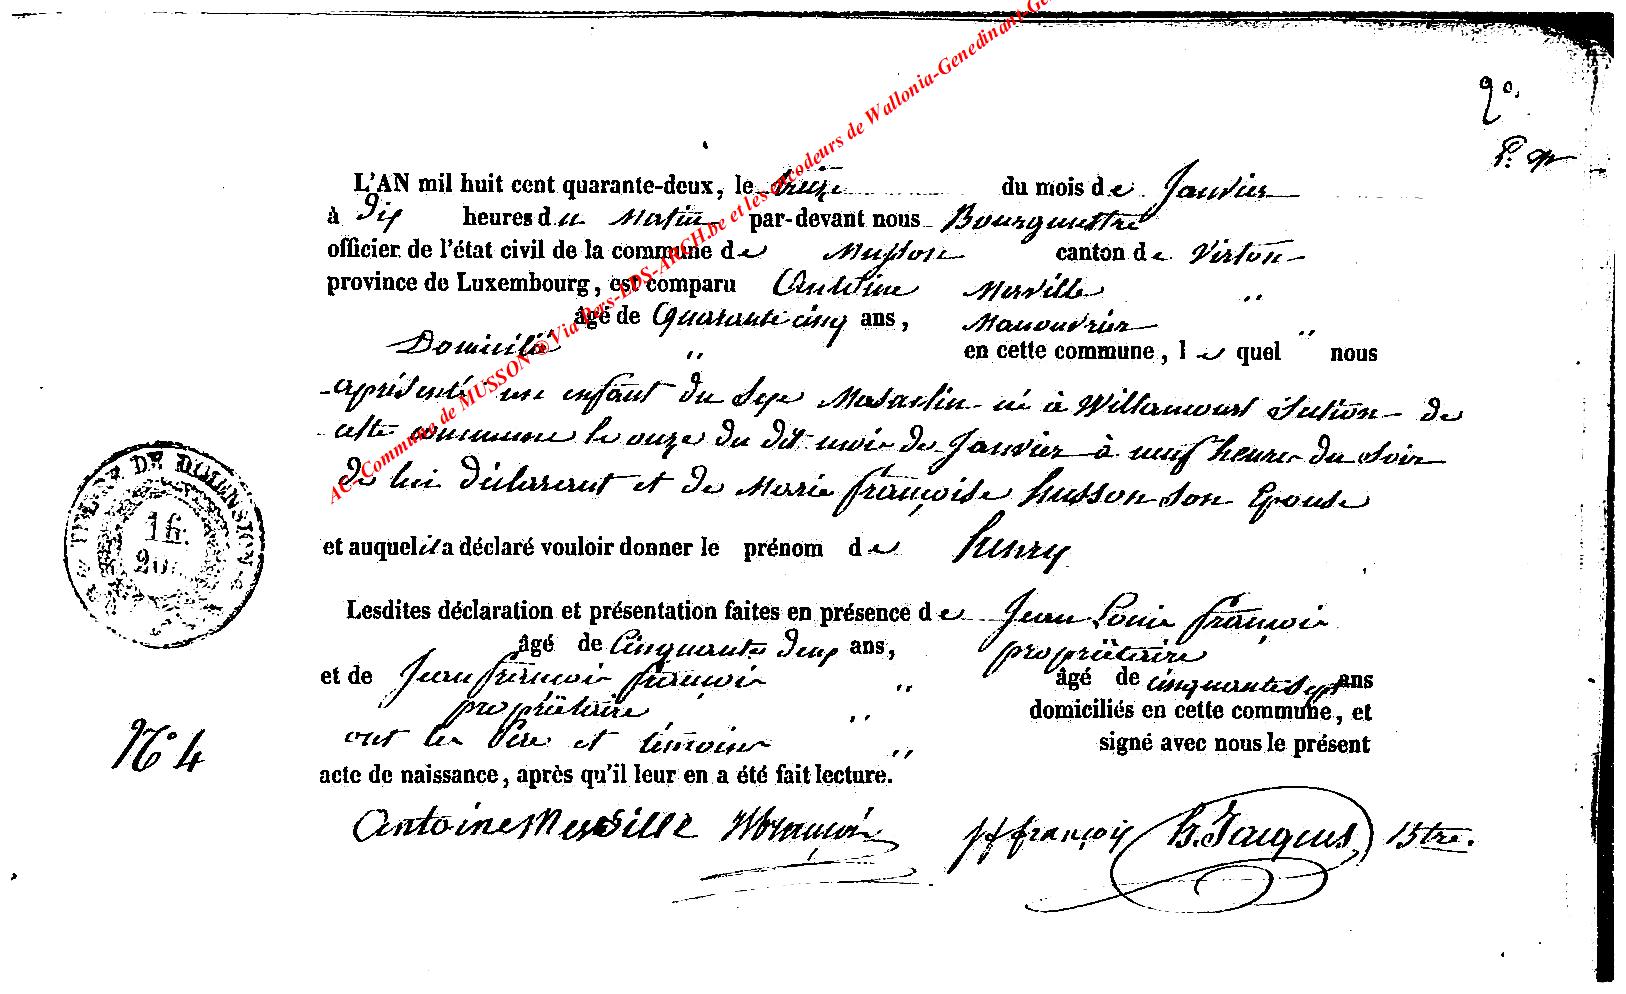 2º.
L'AN mil huit cent quarante-deux, le treize du mois de Janvier
à Dix heures du Matin par-devant nous Bourguestre
officier de l'état civil de la commune de Musson canton de Virton
province de Luxembourg, est comparu Antoine Merville "
âgé de Quarante cinq ans, Manouvrier "
Domicilié " en cette commune, le quel " nous
a présenté un enfant du Sexe Masculin né à Willancourt Section de
cette commune le onze du dit mois de Janvier à neuf heures du Soir
de lui déclarant et de Marie françoise husson son Epouse
et auquel il a déclaré vouloir donner le prénom de henry
Lesdites déclaration et présentation faites en présence de Jean Louis françois
âgé de Cinquante Deux ans, propriétaire
et de Jean françois françois " âgé de cinquante Sept ans
propriétaire " domiciliés en cette commune, et
ont les Père et témoins " signé avec nous le présent
acte de naissance, après qu'il leur en a été fait lecture.
Antoine Merville jf françois h. Jacques Bstre.
Nº 4
TIMBRE DE DIMENSION
16.
AC-Commune de MUSSON @ Via Pers-EDS-ARCH.be et les encodeurs de Wallonia-Genedinant-Ge